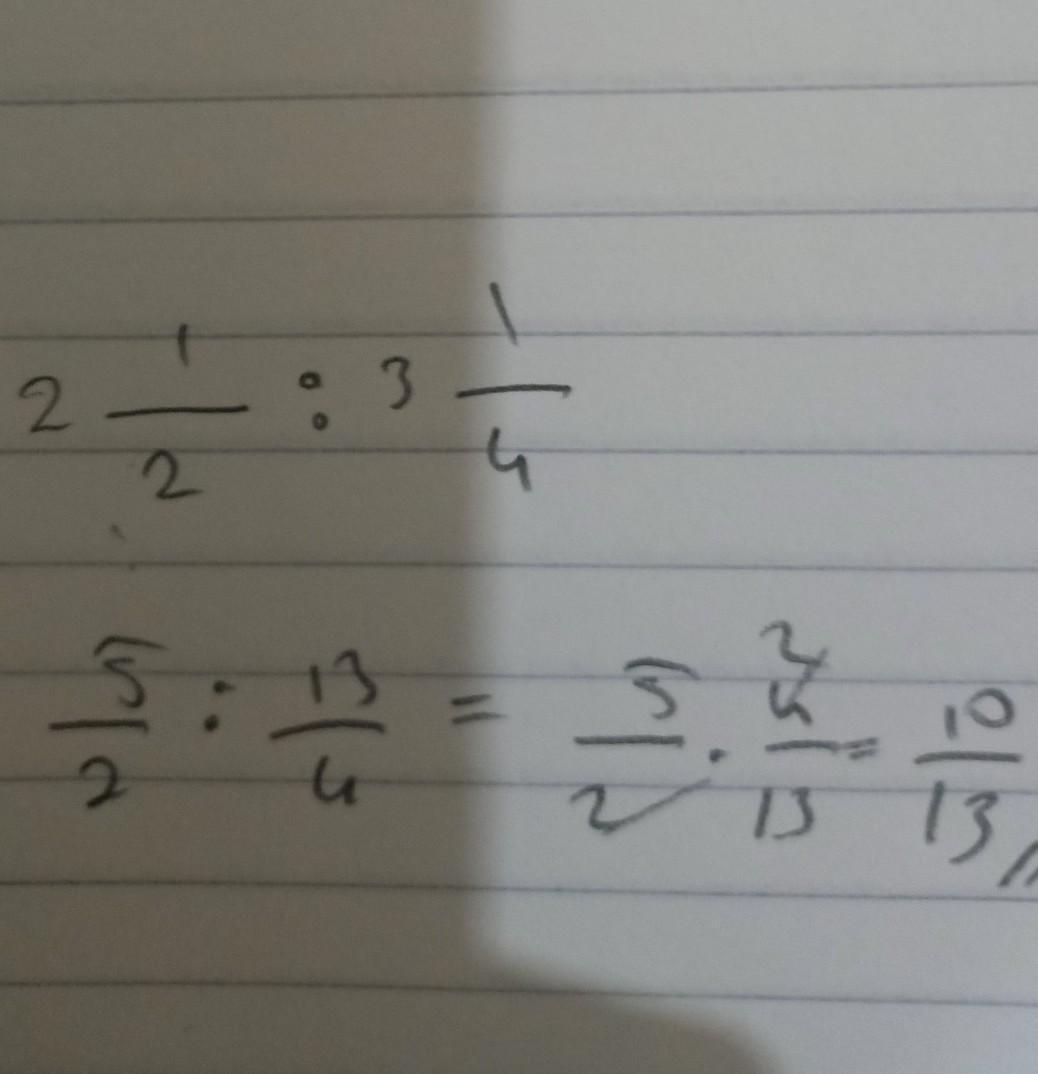 2 1/2 : 3 1/4
5/2 : 13/4 = 5/2 . 4/13 2 = 10/13 //